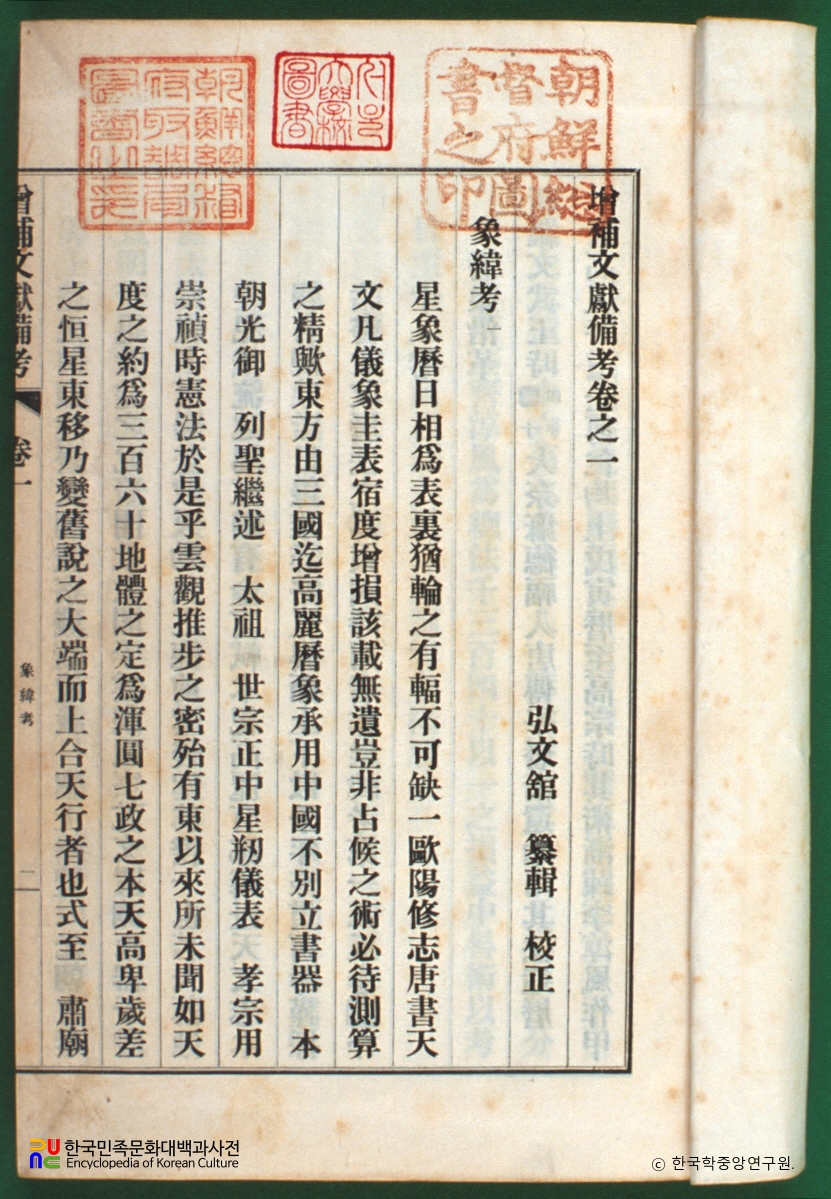 朝鮮総督府圖書之印
增補文獻備考卷之一
弘文館 纂輯 校正
象緯考一
星象曆日相爲表裏猶輪之有輻不可缺一歐陽修志唐書天
文凡儀象圭表宿度增損該載無遺豈非占候之術必待測算
之精歟東方由三國迄高麗曆象承用中國不別立書器 本
朝光御 列聖繼述 太祖 世宗正中星刱儀表 孝宗用
崇禎時憲法於是乎雲觀推步之密殆有東以來所未聞如天
度之約爲三百六十地體之定爲渾圓七政之本天高卑歲差
之恒星東移乃變舊說之大端而上合天行者也式至 肅廟
增補文獻備考 卷一
象緯考
二
한국민족문화대백과사전
Encyclopedia of Korean Culture
© 한국학중앙연구원.